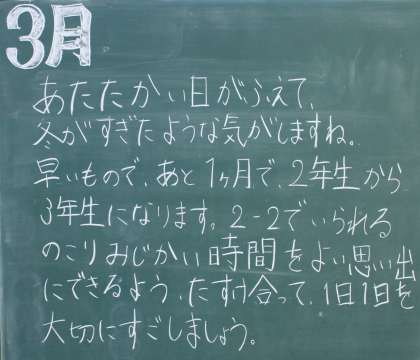 3月
あたたかい日がふえて、
冬がすぎたような気がしますね。
早いもので、あと1ヶ月で、2年生から
3年生になります。2-2でいられる
のこりみじかい時間をよい思い出
にできるよう、たすけ合って、1日1日を
大切にすごしましょう。